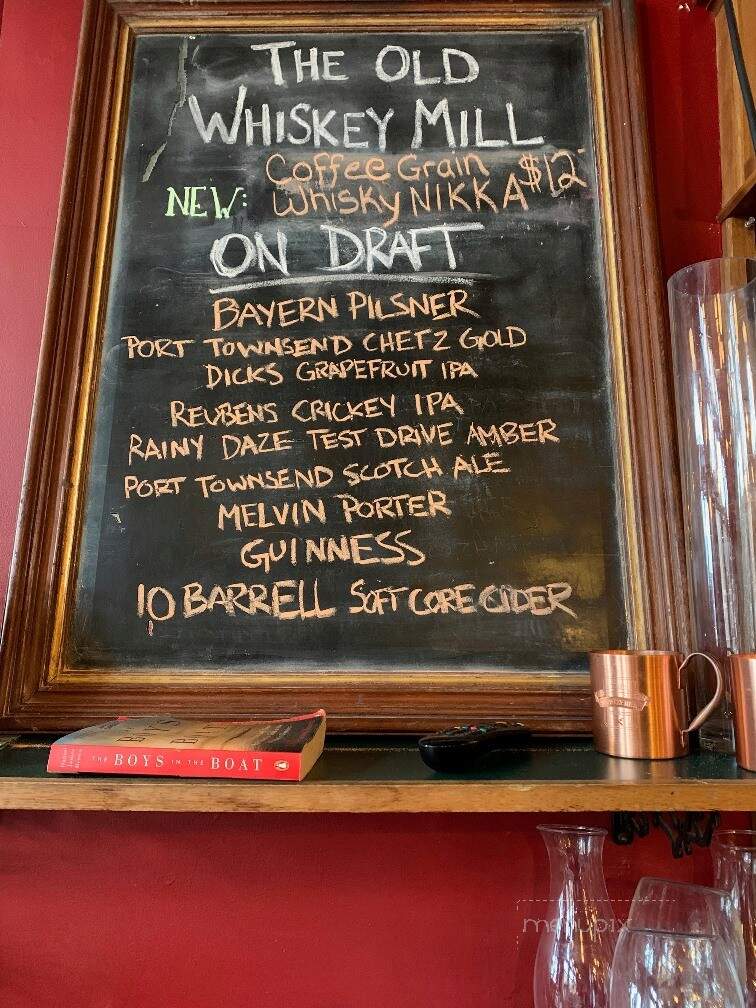 THE OLD
WHISKEY MILL
NEW: Coffee Grain $12
Whisky NIKKA
ON DRAFT
BAYERN PILSNER
PORT TOWNSEND CHETZ GOLD
DICKS GRAPEFRUIT IPA
REUBENS CRICKEY IPA
RAINY DAZE TEST DRIVE AMBER
PORT TOWNSEND SCOTCH ALE
MELVIN PORTER
GUINNESS
10 BARRELL SOFT CORE CIDER
THE BOYS IN THE BOAT
menupix